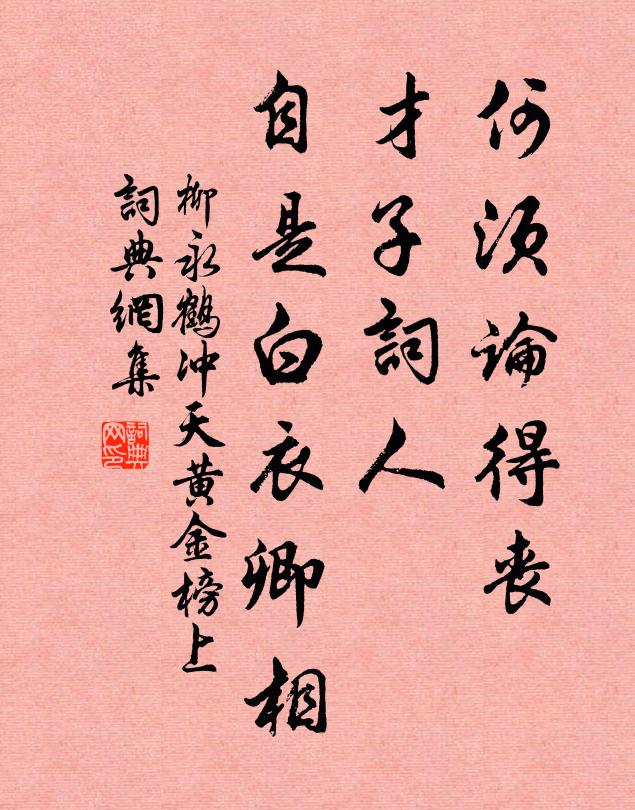 何須論得喪
才子詞人
自是白衣卿相
柳永鶴冲天黄金榜上
詞典網集
詞典
网印